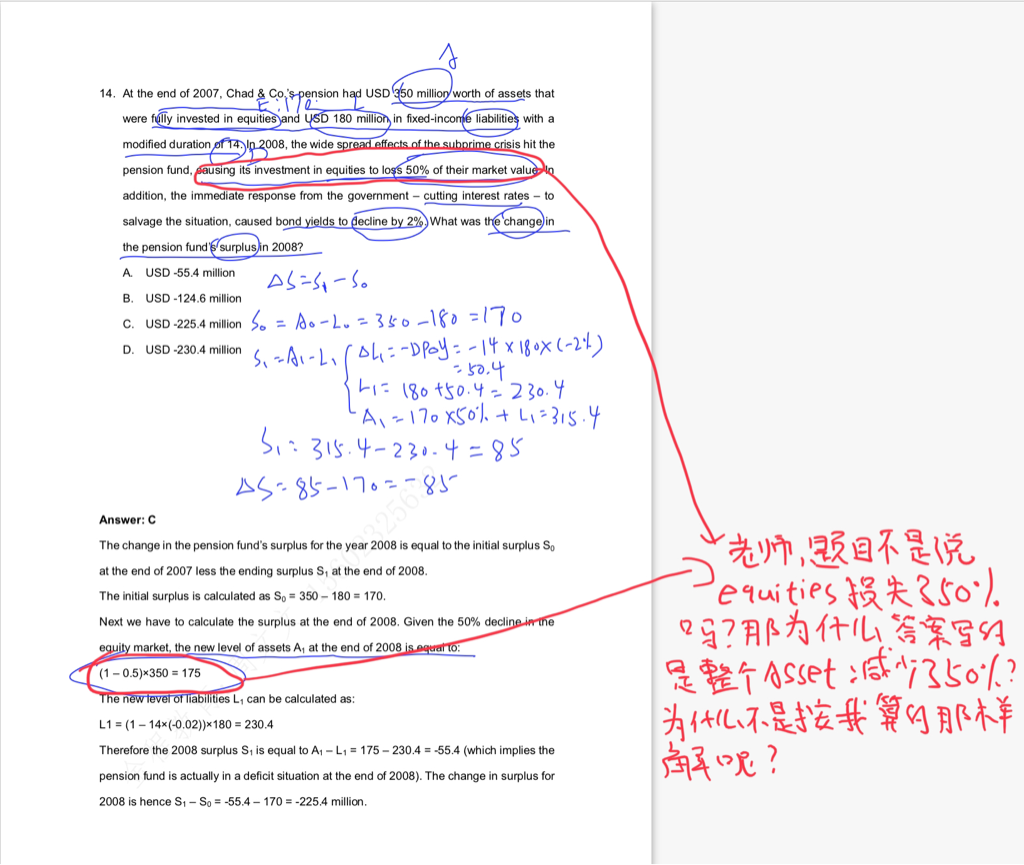 A
14. At the end of 2007, Chad & Co.'s pension had USD 350 million worth of assets that
E:170. L
were fully invested in equities and USD 180 million in fixed-income liabilities with a
modified duration of 14. In 2008, the wide spread effects of the subprime crisis hit the
D
pension fund, causing its investment in equities to loss 50% of their market value. In
addition, the immediate response from the government – cutting interest rates – to
salvage the situation, caused bond yields to decline by 2%. What was the change in
the pension fund's surplus in 2008?
A. USD -55.4 million
ΔS=S₁-S₀
B. USD -124.6 million
C. USD -225.4 million
S₀ = A₀-L₀ = 350-180 =170
D. USD -230.4 million
S₁=A₁-L₁ { ΔL₁=-DP△y=-14×180×(-2%)
=50.4
L₁= 180+50.4=230.4
A₁=170×50%+L₁=315.4
S₁=315.4-230.4=85
ΔS=85-170=-85
Answer: C
The change in the pension fund's surplus for the year 2008 is equal to the initial surplus S₀
at the end of 2007 less the ending surplus S₁ at the end of 2008.
The initial surplus is calculated as S₀ = 350 – 180 = 170.
Next we have to calculate the surplus at the end of 2008. Given the 50% decline in the
equity market, the new level of assets A₁ at the end of 2008 is equal to:
(1 – 0.5)×350 = 175
The new level of liabilities L₁ can be calculated as:
L1 = (1 – 14×(-0.02))×180 = 230.4
Therefore the 2008 surplus S₁ is equal to A₁ – L₁ = 175 – 230.4 = -55.4 (which implies the
pension fund is actually in a deficit situation at the end of 2008). The change in surplus for
2008 is hence S₁ – S₀ = -55.4 – 170 = -225.4 million.
老师,题目不是说
equities损失了50%
吗?那为什么答案写的
是整个Asset减少了50%?
为什么不是按我算的那样
解呢?